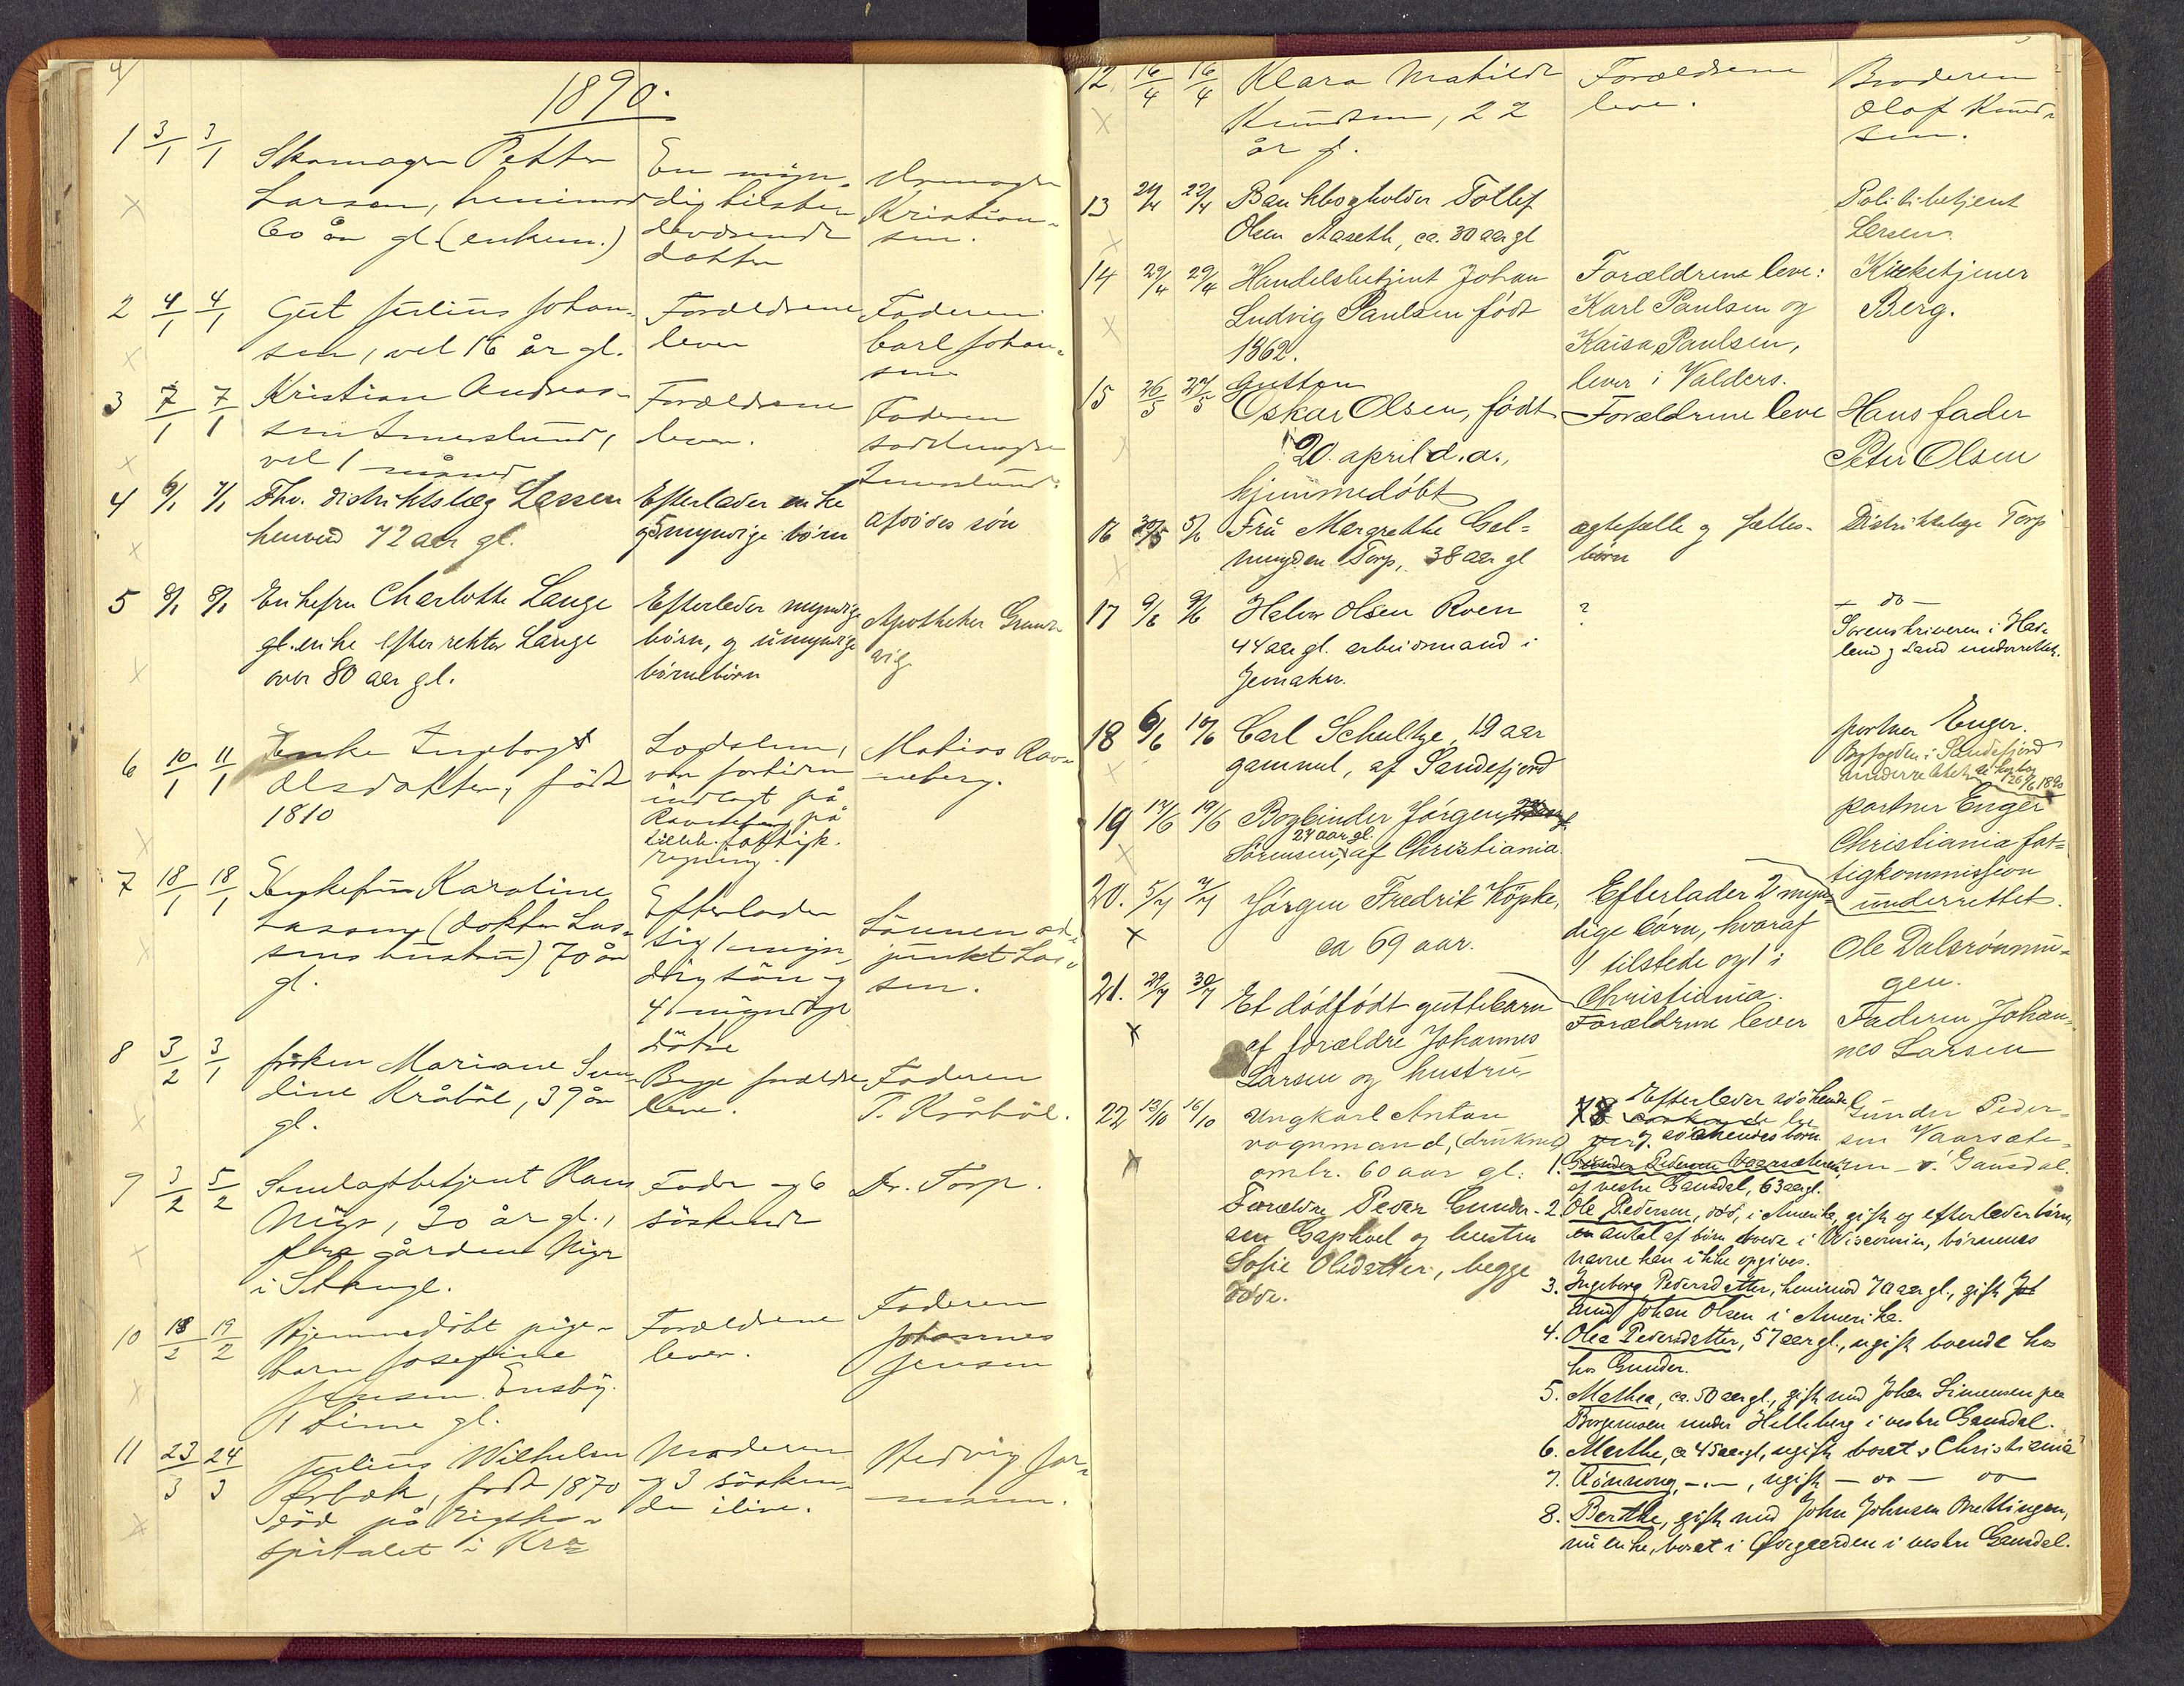 4
1890.
1 3/1 3/1 Skomager Petter
Larsen, henimod
60 år gl. (enkem.)
En myn-
dig tilste-
deværende
datter
Kristian-
sen.
2 4/1 4/1 Gut Julius Johan-
sen, vel 16 år gl.
Forældrene
lever
Faderen
Carl Johan-
sen
3 7/1 7/1 Kristian Andreas-
sen
vel 1 måned
Forældrene
lever.
Faderen
sadelmager
4 6/1 7/1 Fhv. distriktslæg Lassen
henved 72 aar gl.
Efterlader enke
og 5 myndige børn
afdødes søn
5 8/1 8/1 Enkefru Charlotte Lange
gl. enke efter rektor Lange
over 80 aar gl.
Efterlader myndige
børn, og umyndige
børnebørn
Apotheker
6 10/1 11/1 Enke Ingeborg
Olsdatter, født
1810
Logslem,
var for tiden
indlagt på
på
Lilleh. fattigk.
regning.
Matias Rav-
neberg.
7 18/1 18/1 Enkefru Karoline
Lasson (doktor Las-
sens hustru) 70 år
gl.
Efterlader
sig 1 myn-
dig søn og
4 myndige
døtre
Sønnen ad-
junkt Las-
sen.
8 3/2 3/1 frøken Mariane
Kråbøl, 39 år
gl.
Begge forældre
leve.
Faderen
T. Kråbøl.
9 3/2 5/2 Samlagsbetjent Hans
20 år gl.,
fra gården
i Stange.
Fader og 6
søskende
Dr. Torp.
10 18/2 19/2 Hjemmedøbt pige-
barn Josefine
Jensen Ensby.
1 time gl.
Forældrene
lever.
Faderen
Johannes
Jensen
11 23/3 24/3 Julius Wilhelm
født 1870
død på rigsho-
spitalet i Kra
Moderen
og 3 søsken-
de ilive.
Hedvig
12 16/4 16/4 Klara Matilde
Knudsen, 22
år gl.
Forældrene
leve.
Broderen
Olaf Knud-
sen.
13 21/4 22/4 Bankbogholder Tollef
Olsen Aaseth, ca. 30 aar gl
Politibetjent
Larsen.
14 29/4 29/4 Handelsbetjent Johan
Ludvig Paulsen født
1862.
Forældrene leve:
Karl Paulsen og
Kaisa Paulsen,
lever i Valders.
Kirketjener
Berg.
15 26/5 27/5 Gutten
Oskar Olsen, født
20. april d.a.,
hjemmedøbt
Forældrene leve
Hans fader
Peter Olsen
16 30/5 5/6 Fru Margrethe
Torp, 38 aar gl
ægtefælle og fælles-
børn
Distriktslæge Torp
17 9/6 9/6 Halvor Olsen Roen
44 aar gl. arbeidsmand i
Jevnaker.
?
— do —
Sorenskriveren i Hade-
land og Land underrettet.
18 6/6 10/6 Carl Schultze, 19 aar
gammel, af Sandefjord
portner Enger.
Byfogden i Sandefjord
underrettet
26/6 1890
19 17/6 19/6 Bogbinder Jørgen
24 aar gl.
Sørensen, af Christiania.
portner Enger
Christiania fat-
tigkommission
underrettet.
20. 5/7 7/7 Jørgen Fredrik Köpke,
ca 69 aar.
Efterlader 2 myn-
dige børn, hvoraf
1 tilstede og 1 i
Christiania.
Ole Dalsrønnin-
gen.
21. 29/7 30/7 Et dødfødt guttebarn
af forældre Johannes
Larsen og hustru
Forældrene lever
Faderen Johan-
nes Larsen
22 13/10 16/10 Ungkarl Anton
vognmand, (druknet)
omtr. 60 aar gl:
Forældre Peder Gunder-
sen Gaphol og hustru
Sofie Olsdatter, begge
døde.
Efterlader søskende
og søskendes børn
Gunder Peder-
sen Vaarsæte-
ren – v. Gausdal.
1. Gunder Pedersen Vaarsæteren,
af vestre Gausdal, 63 aar gl.
2. Ole Pedersen, død, i Amerika, gift og efterlader børn,
en antal af børn boende i Wisconsin, børnenes
navne kan ikke opgives.
3. Ingeborg Pedersdatter, henimod 70 aar gl., gift
med Johan Olsen i Amerika.
4. Olea Pedersdatter, 57 aar gl., ugift boende hos
hos Gunder.
5. Mathea, ca. 50 aar gl., gift med Johan Simensen paa
Borgermoen under Helleberg i vestre Gausdal.
6. Marthe, ca 45 aar gl, ugift boset i Christiania
7. Rønnaug, –„–, ugift – do – do
8. Berthe, gift med John Johnsen Brettingen,
nu enke, boset i Øvergaarden i vestre Gausdal.